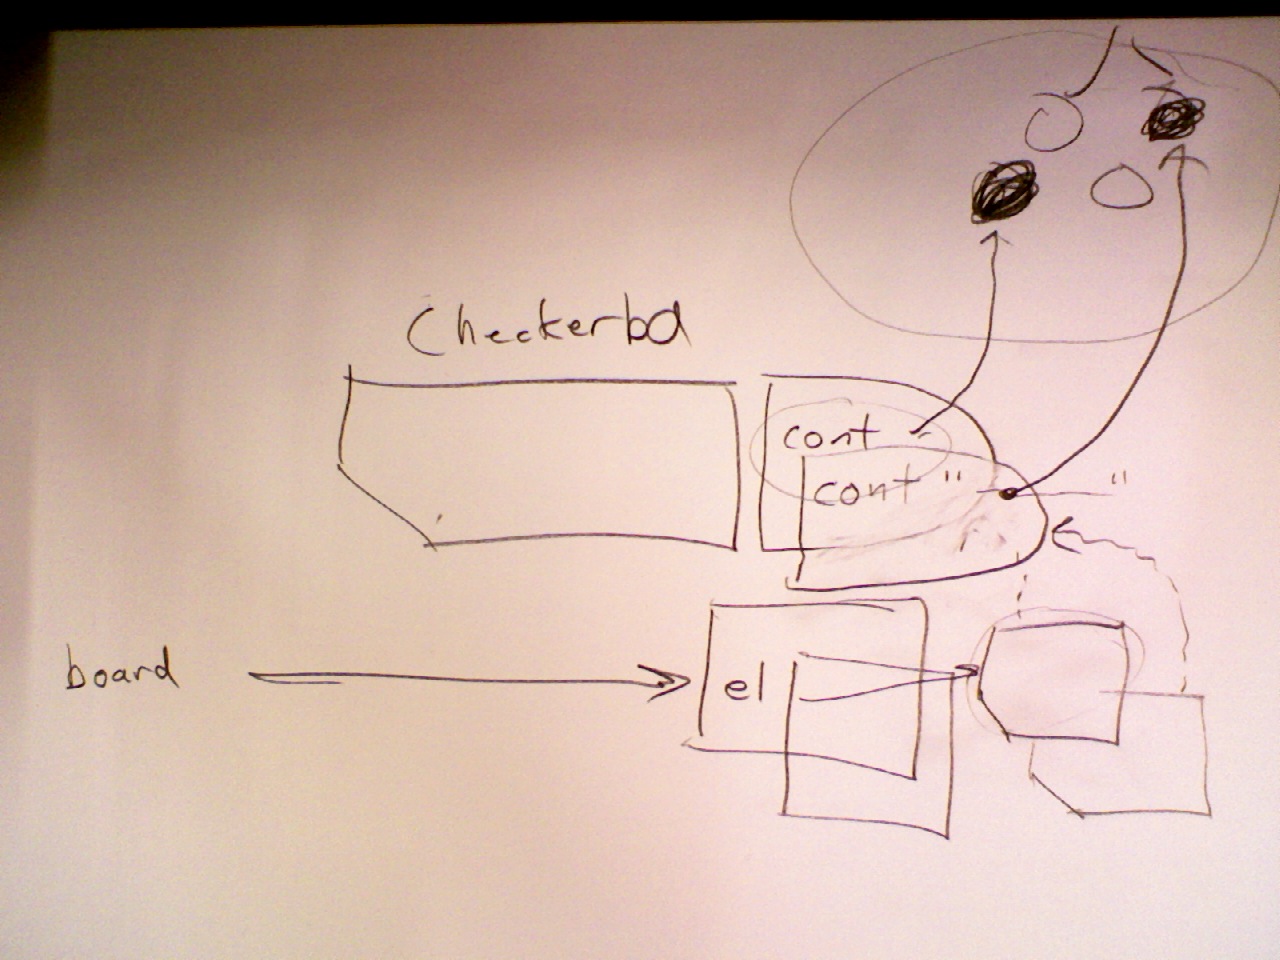 Checkerbd
cont
cont " "
board
el